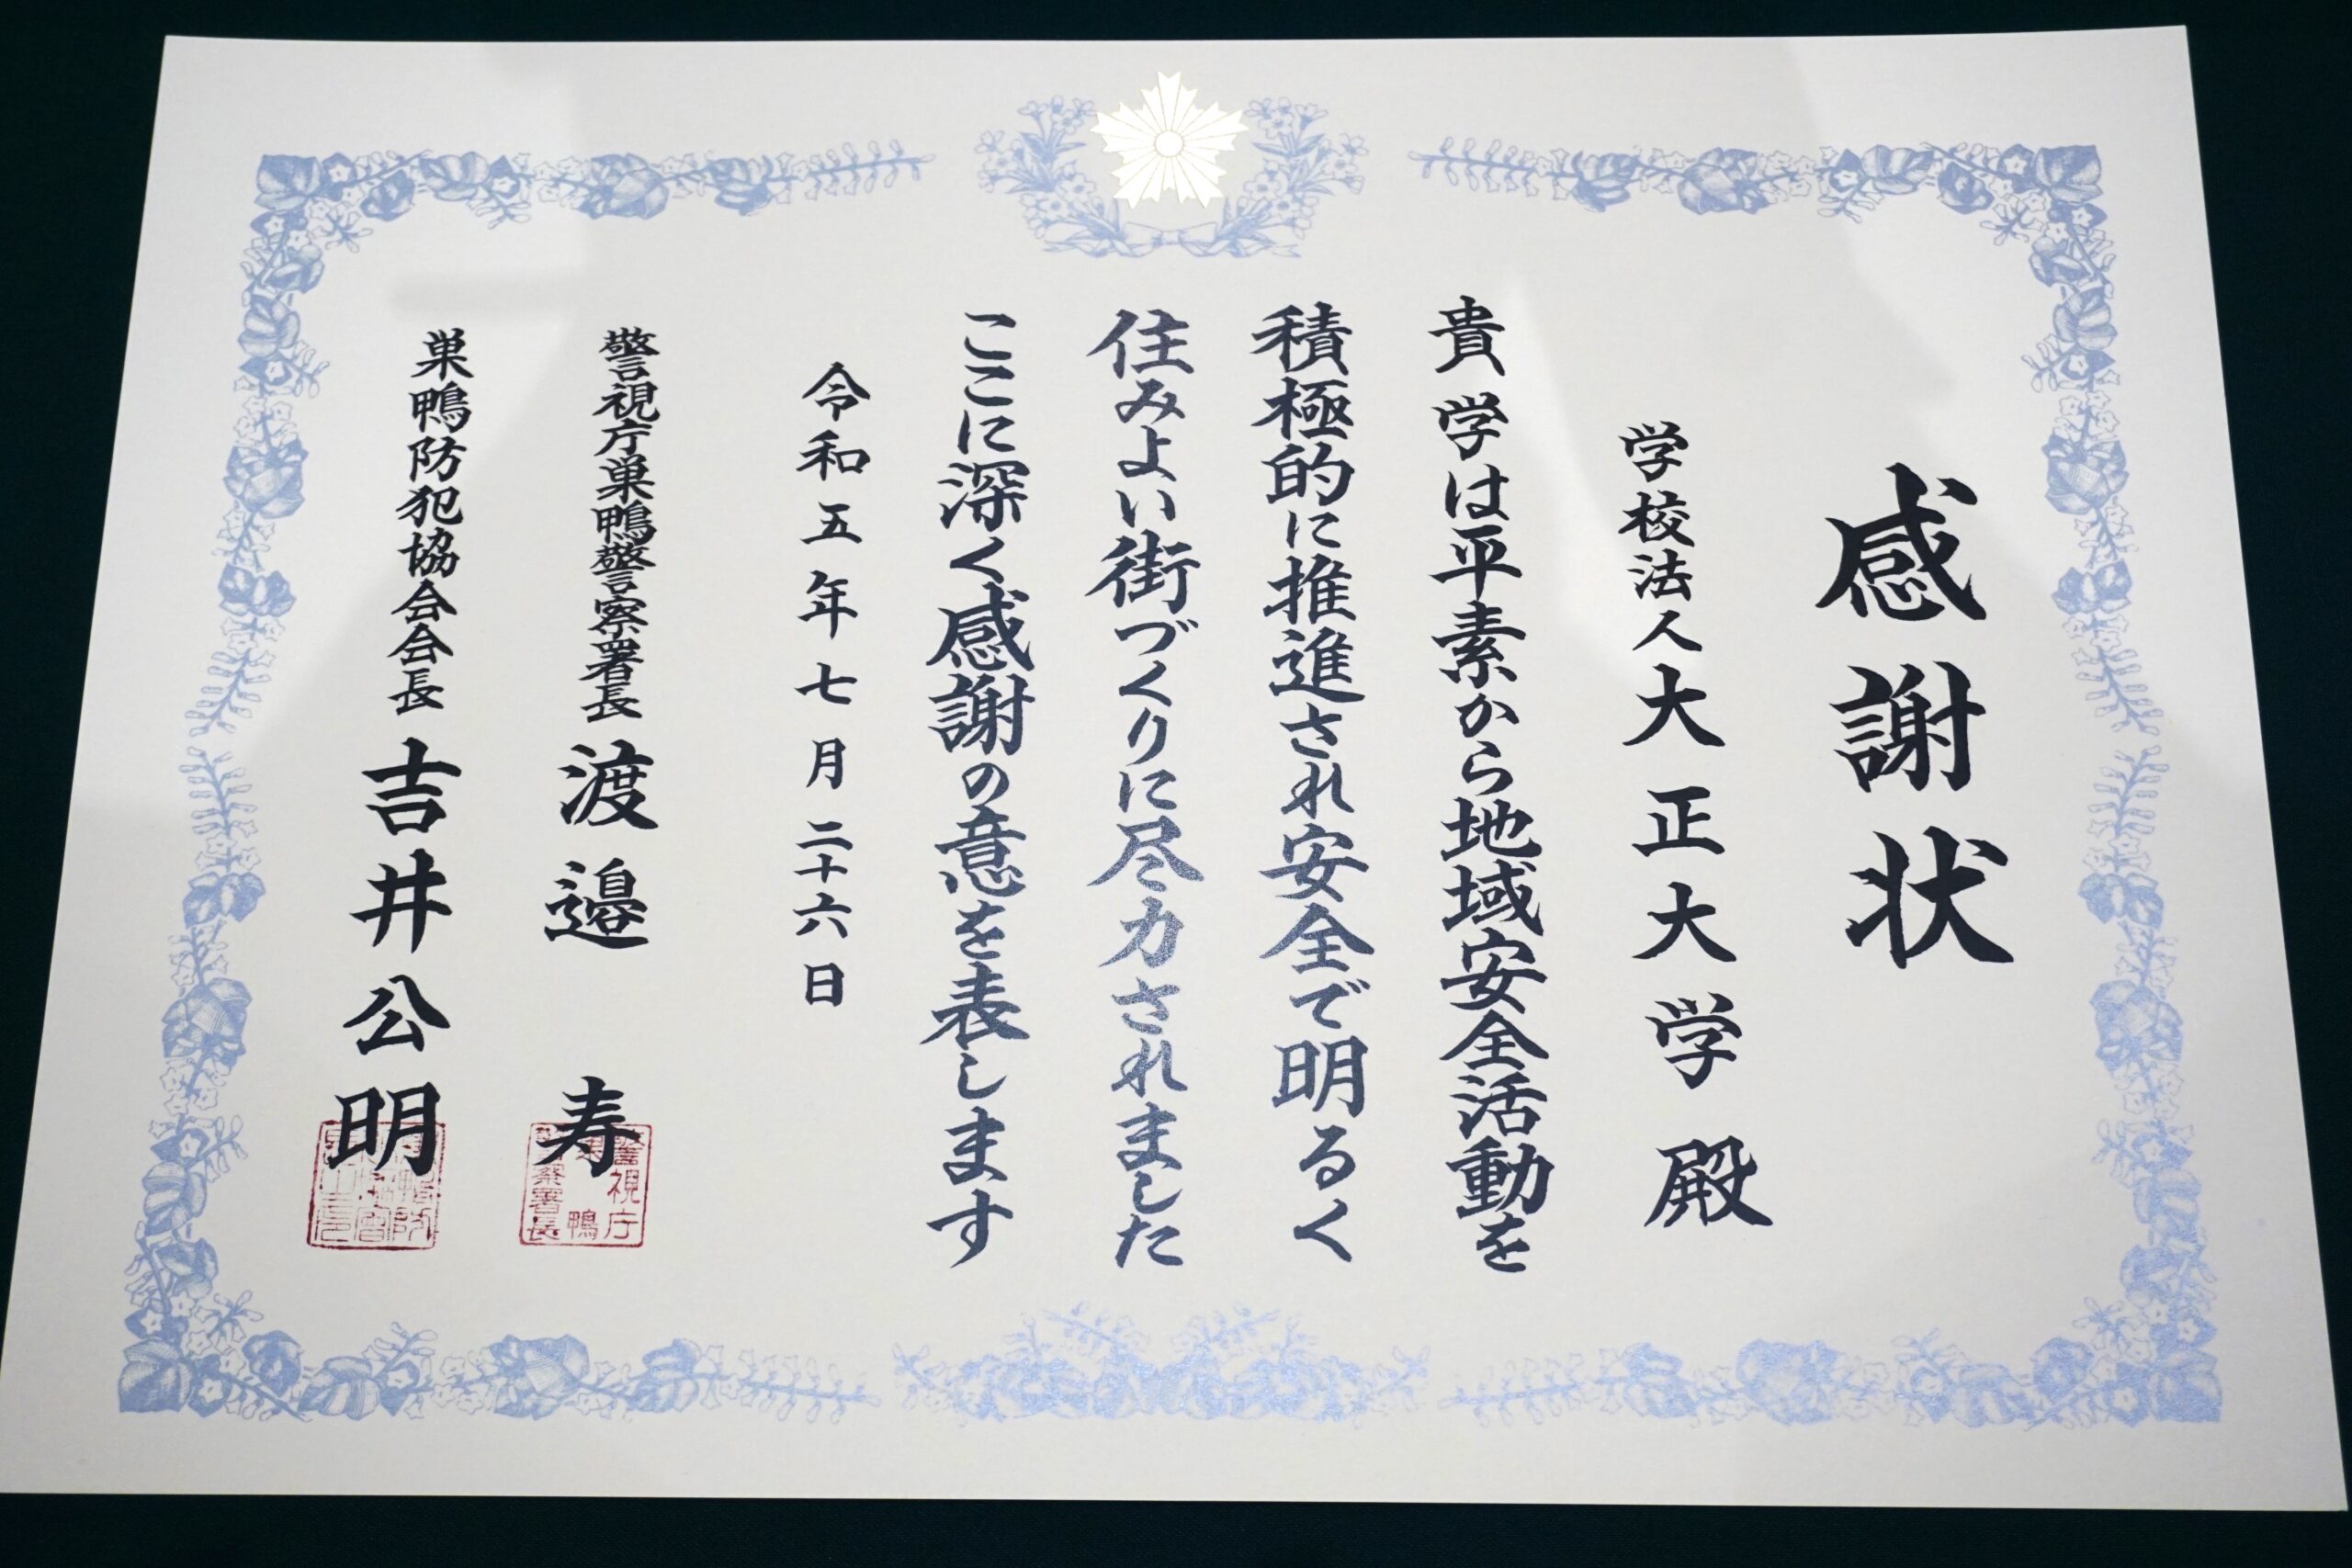 感謝状
学校法人大正大学殿
貴学は平素から地域安全活動を
積極的に推進され安全で明るく
住みよい街づくりに尽力されました
ここに深く感謝の意を表します
令和五年七月二十六日
警視庁巣鴨警察署長 渡邉 寿
巣鴨防犯協会会長 吉井公明